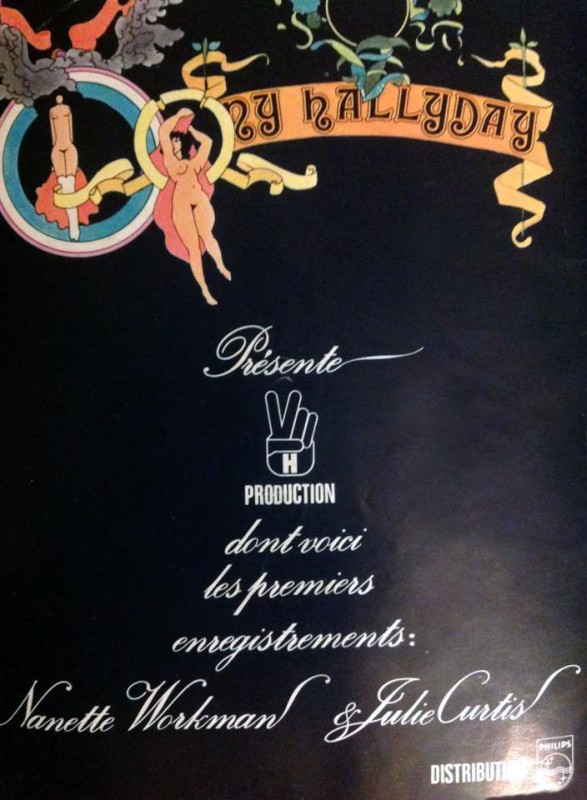 NY HALLYDAY
Présente
H
PRODUCTION
dont voici
les premiers
enregistrements:
Nanette Workman & Julie Curtis
PHILIPS